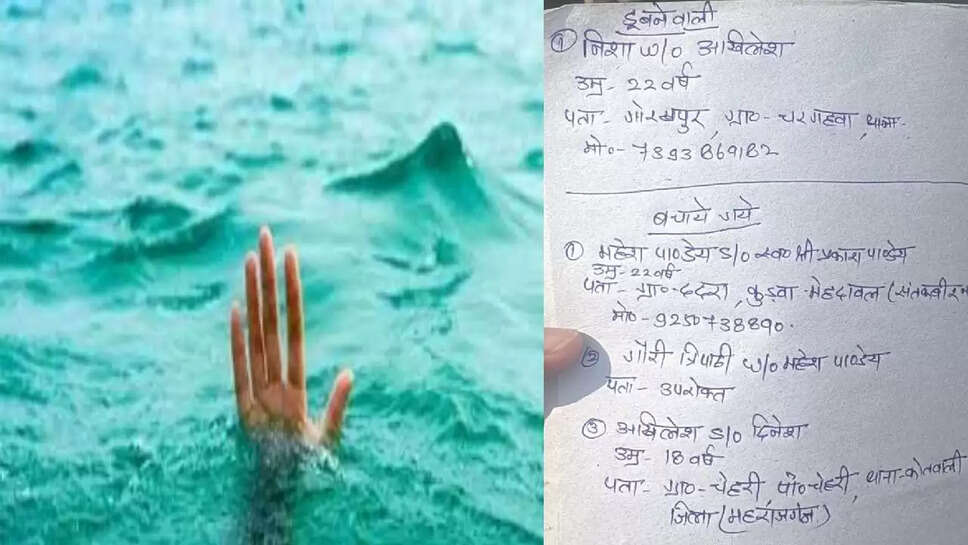 डूबने वाली
① निशा w/o अखिलेश
उम्र- 22 वर्ष
पता- गोरखपुर, ग्रा०- चरगहवा, थाना-
मो०- 7393869182
बचाये गये
① महेश पाण्डेय S/o स्व० श्री प्रकाश पाण्डेय
उम्र- 22 वर्ष
पता- ग्रा०- ददरा, कुड़वा - मेहदावल (संतकबीर
मो०- 9250738890.
② गौरी त्रिपाठी w/o महेश पाण्डेय
पता- उपरोक्त
③ अखिलेश S/o दिनेश
उम्र- 18 वर्ष
पता- ग्रा०- चेहरी, पो० चेहरी, थाना- कोतवाली
जिला (महराजगंज)